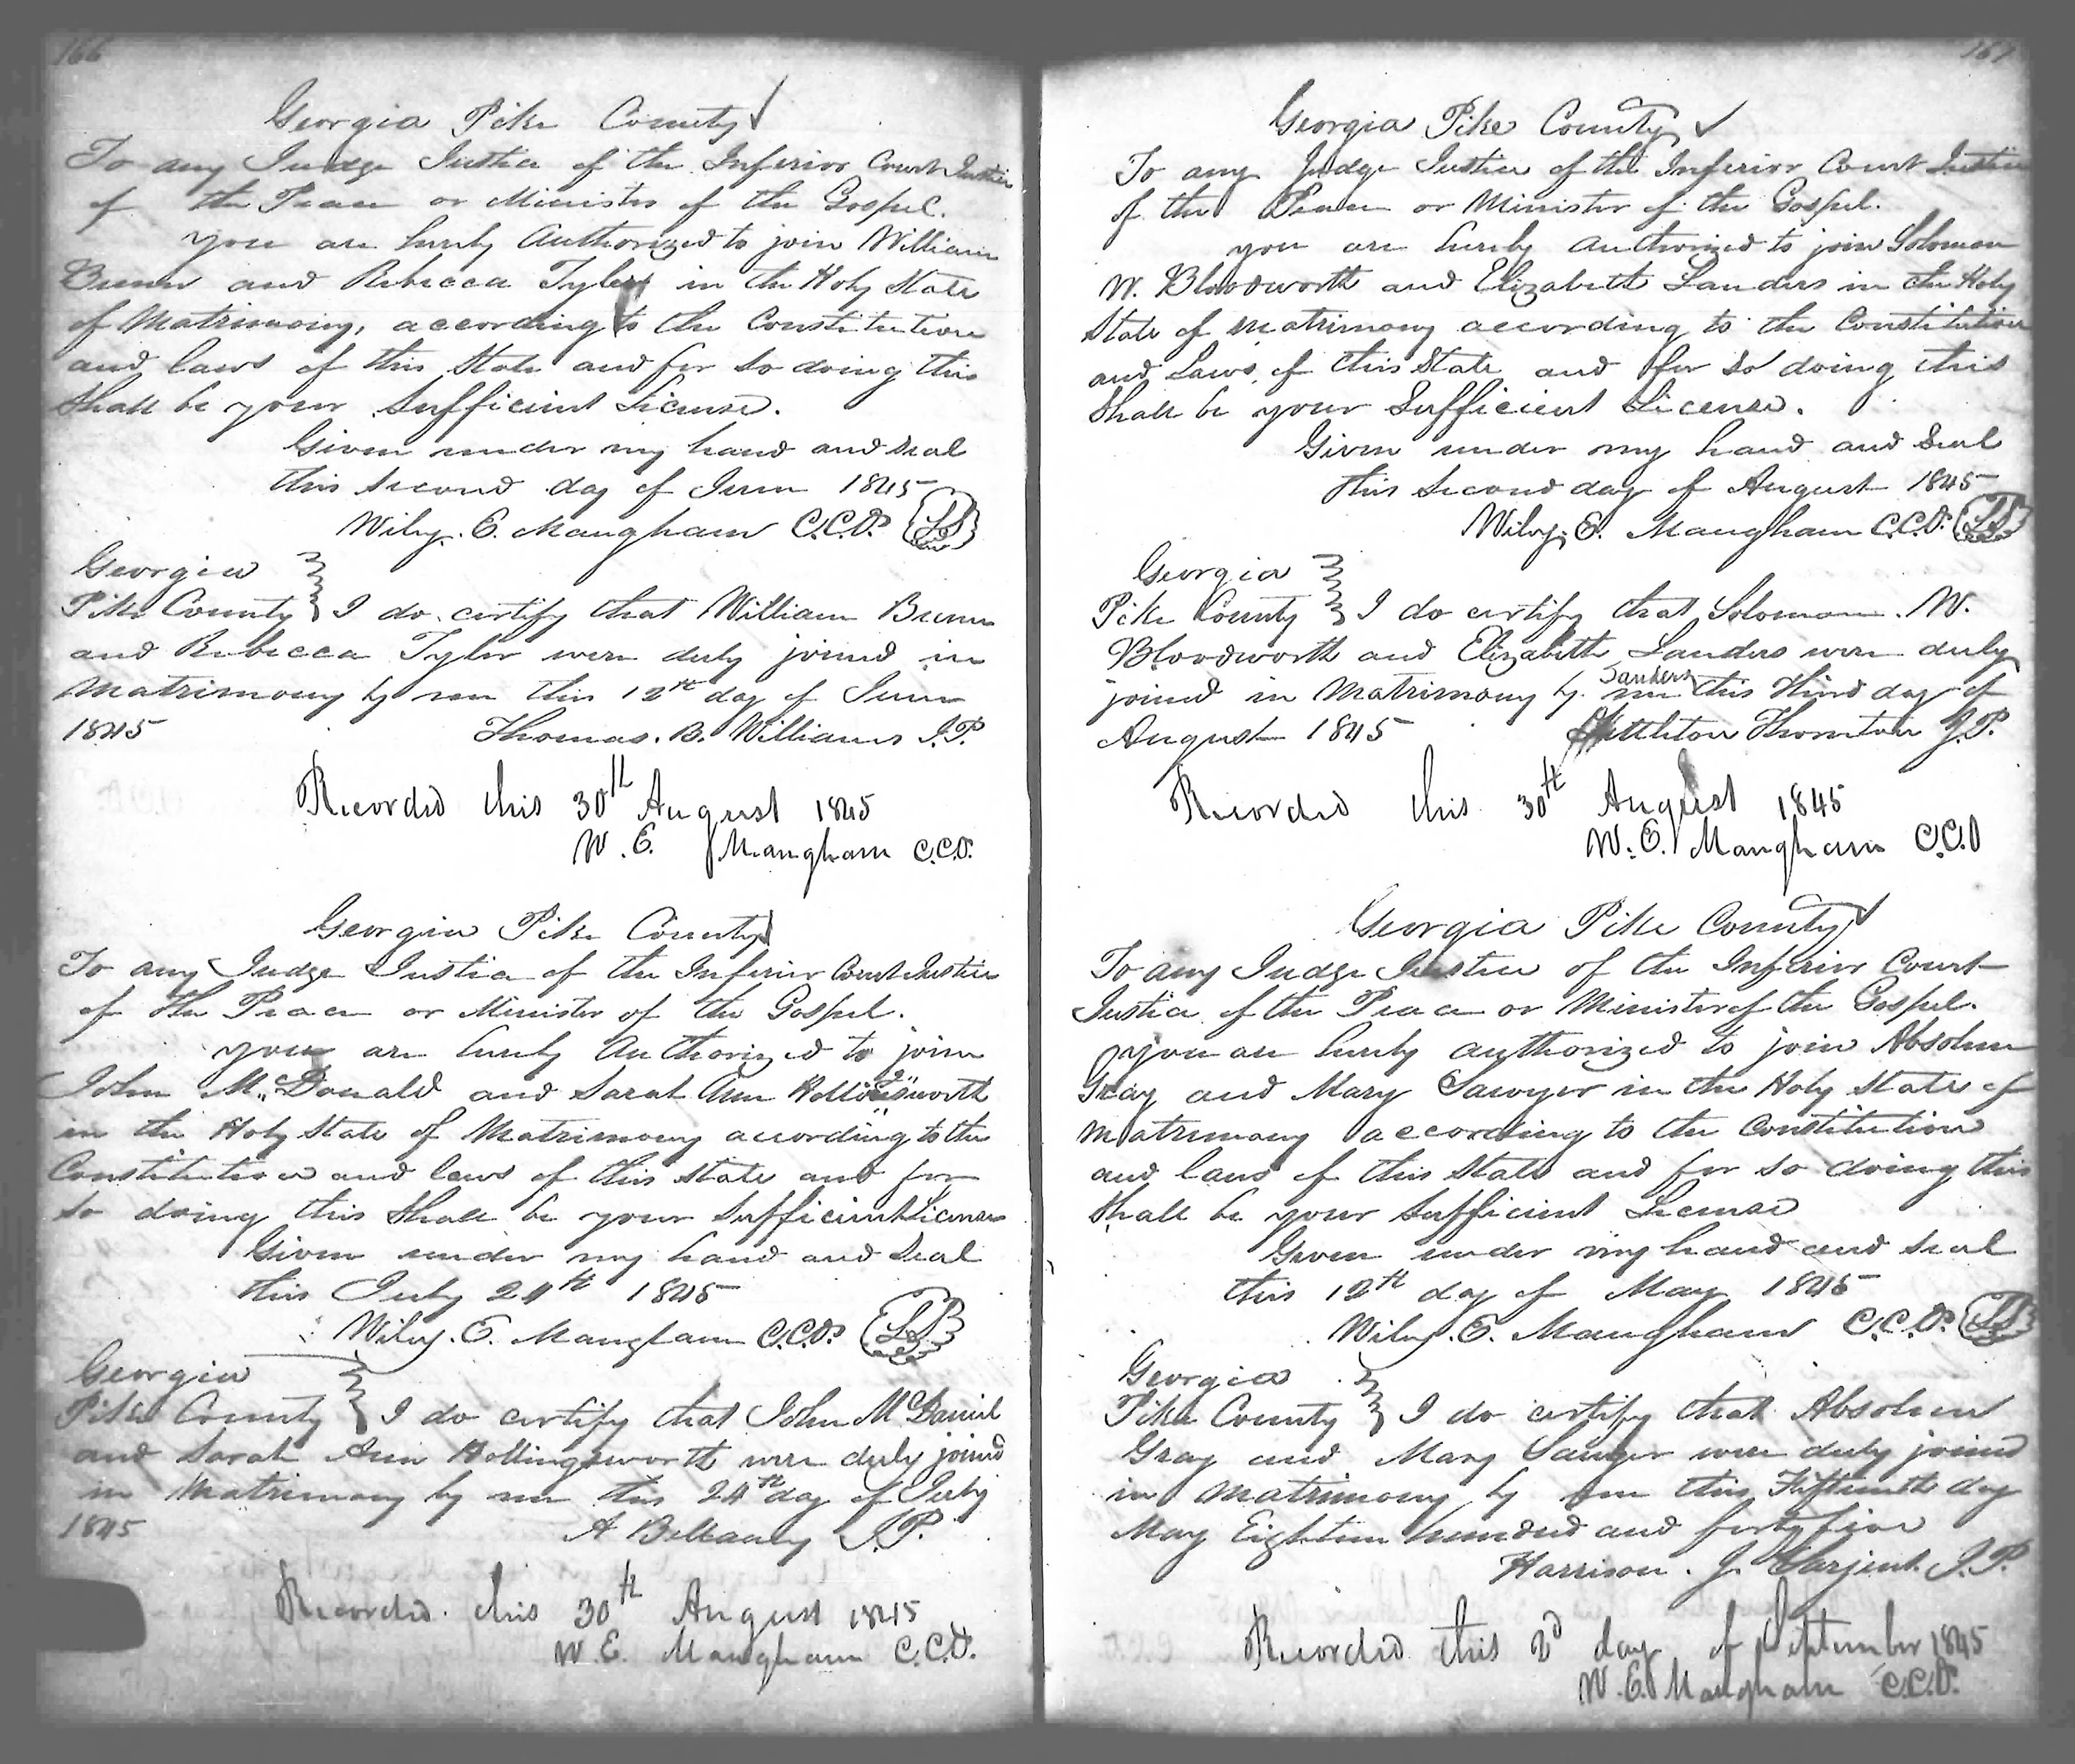 166
Georgia Pike County
To any Judge Justice of the Inferior Court Justice
of the Peace or Minister of the Gospel.
you are hereby Authorized to join William
Bunn and Rebecca Tyler in the Holy State
of Matrimony, according to the Constitution
and laws of this State and for so doing this
Shall be your Sufficient License.
Given under my hand and seal
this second day of June 1845
Wiley. E. Mangham C.C.O. LS
Georgia
Pike County I do certify that William Bunn
and Rebecca Tyler were duly joined in
Matrimony by me this 12th day of June
1845 Thomas. B. Williams J.P.
Recorded this 30th August 1845
W. E. Mangham C.C.O.
Georgia Pike County
To any Judge Justice of the Inferior Court Justice
of the Peace or Minister of the Gospel.
you are hereby Authorized to join
John M. Donald and Sarah Ann Hollingsworth
in the Holy State of Matrimony according to the
Constitution and laws of this State and for
so doing this Shall be your Sufficient License
Given under my hand and Seal
this July 24th 1845
Wiley. E. Mangham C.C.O. LS
Georgia
Pike County I do certify that John McDaniel
and Sarah Ann Hollingsworth were duly joined
in Matrimony by me this 24th day of July
1845 A Bellamy J.P.
Recorded this 30th August 1845
W. E. Mangham C.C.O.
167
Georgia Pike County
To any Judge Justice of the Inferior Court Justice
of the Peace or Minister of the Gospel.
you are hereby authorized to join Solomon
W. Bloodworth and Elizabeth Landers in the Holy
State of Matrimony according to the Constitution
and Laws of this State and for so doing this
Shall be your Sufficient License.
Given under my hand and Seal
this Second day of August 1845
Wiley. E. Mangham C.C.O. LS
Georgia
Pike County I do certify that Solomon. W.
Bloodworth and Elizabeth Landers were duly
Sanders
joined in Matrimony by me this third day of
August 1845 Littleton Thornton J.P.
Recorded this 30th August 1845
W. E. Mangham C.C.O
Georgia Pike County
To any Judge Justice of the Inferior Court
Justice of the Peace or Minister of the Gospel.
you are hereby authorized to join Absolem
Gray and Mary Sawyer in the Holy State of
Matrimony according to the Constitution
and laws of this State and for so doing this
shall be your Sufficient License
Given under my hand and seal
this 12th day of May 1845
Wiley. E. Mangham C.C.O. LS
Georgia
Pike County I do certify that Absolem
Gray and Mary Sawyer were duly joined
in Matrimony by me this Fifteenth day
May Eighteen hundred and forty five
Harrison. J. Sarjent. J.P.
Recorded this 2d day of September 1845
W. E. Mangham C.C.O.